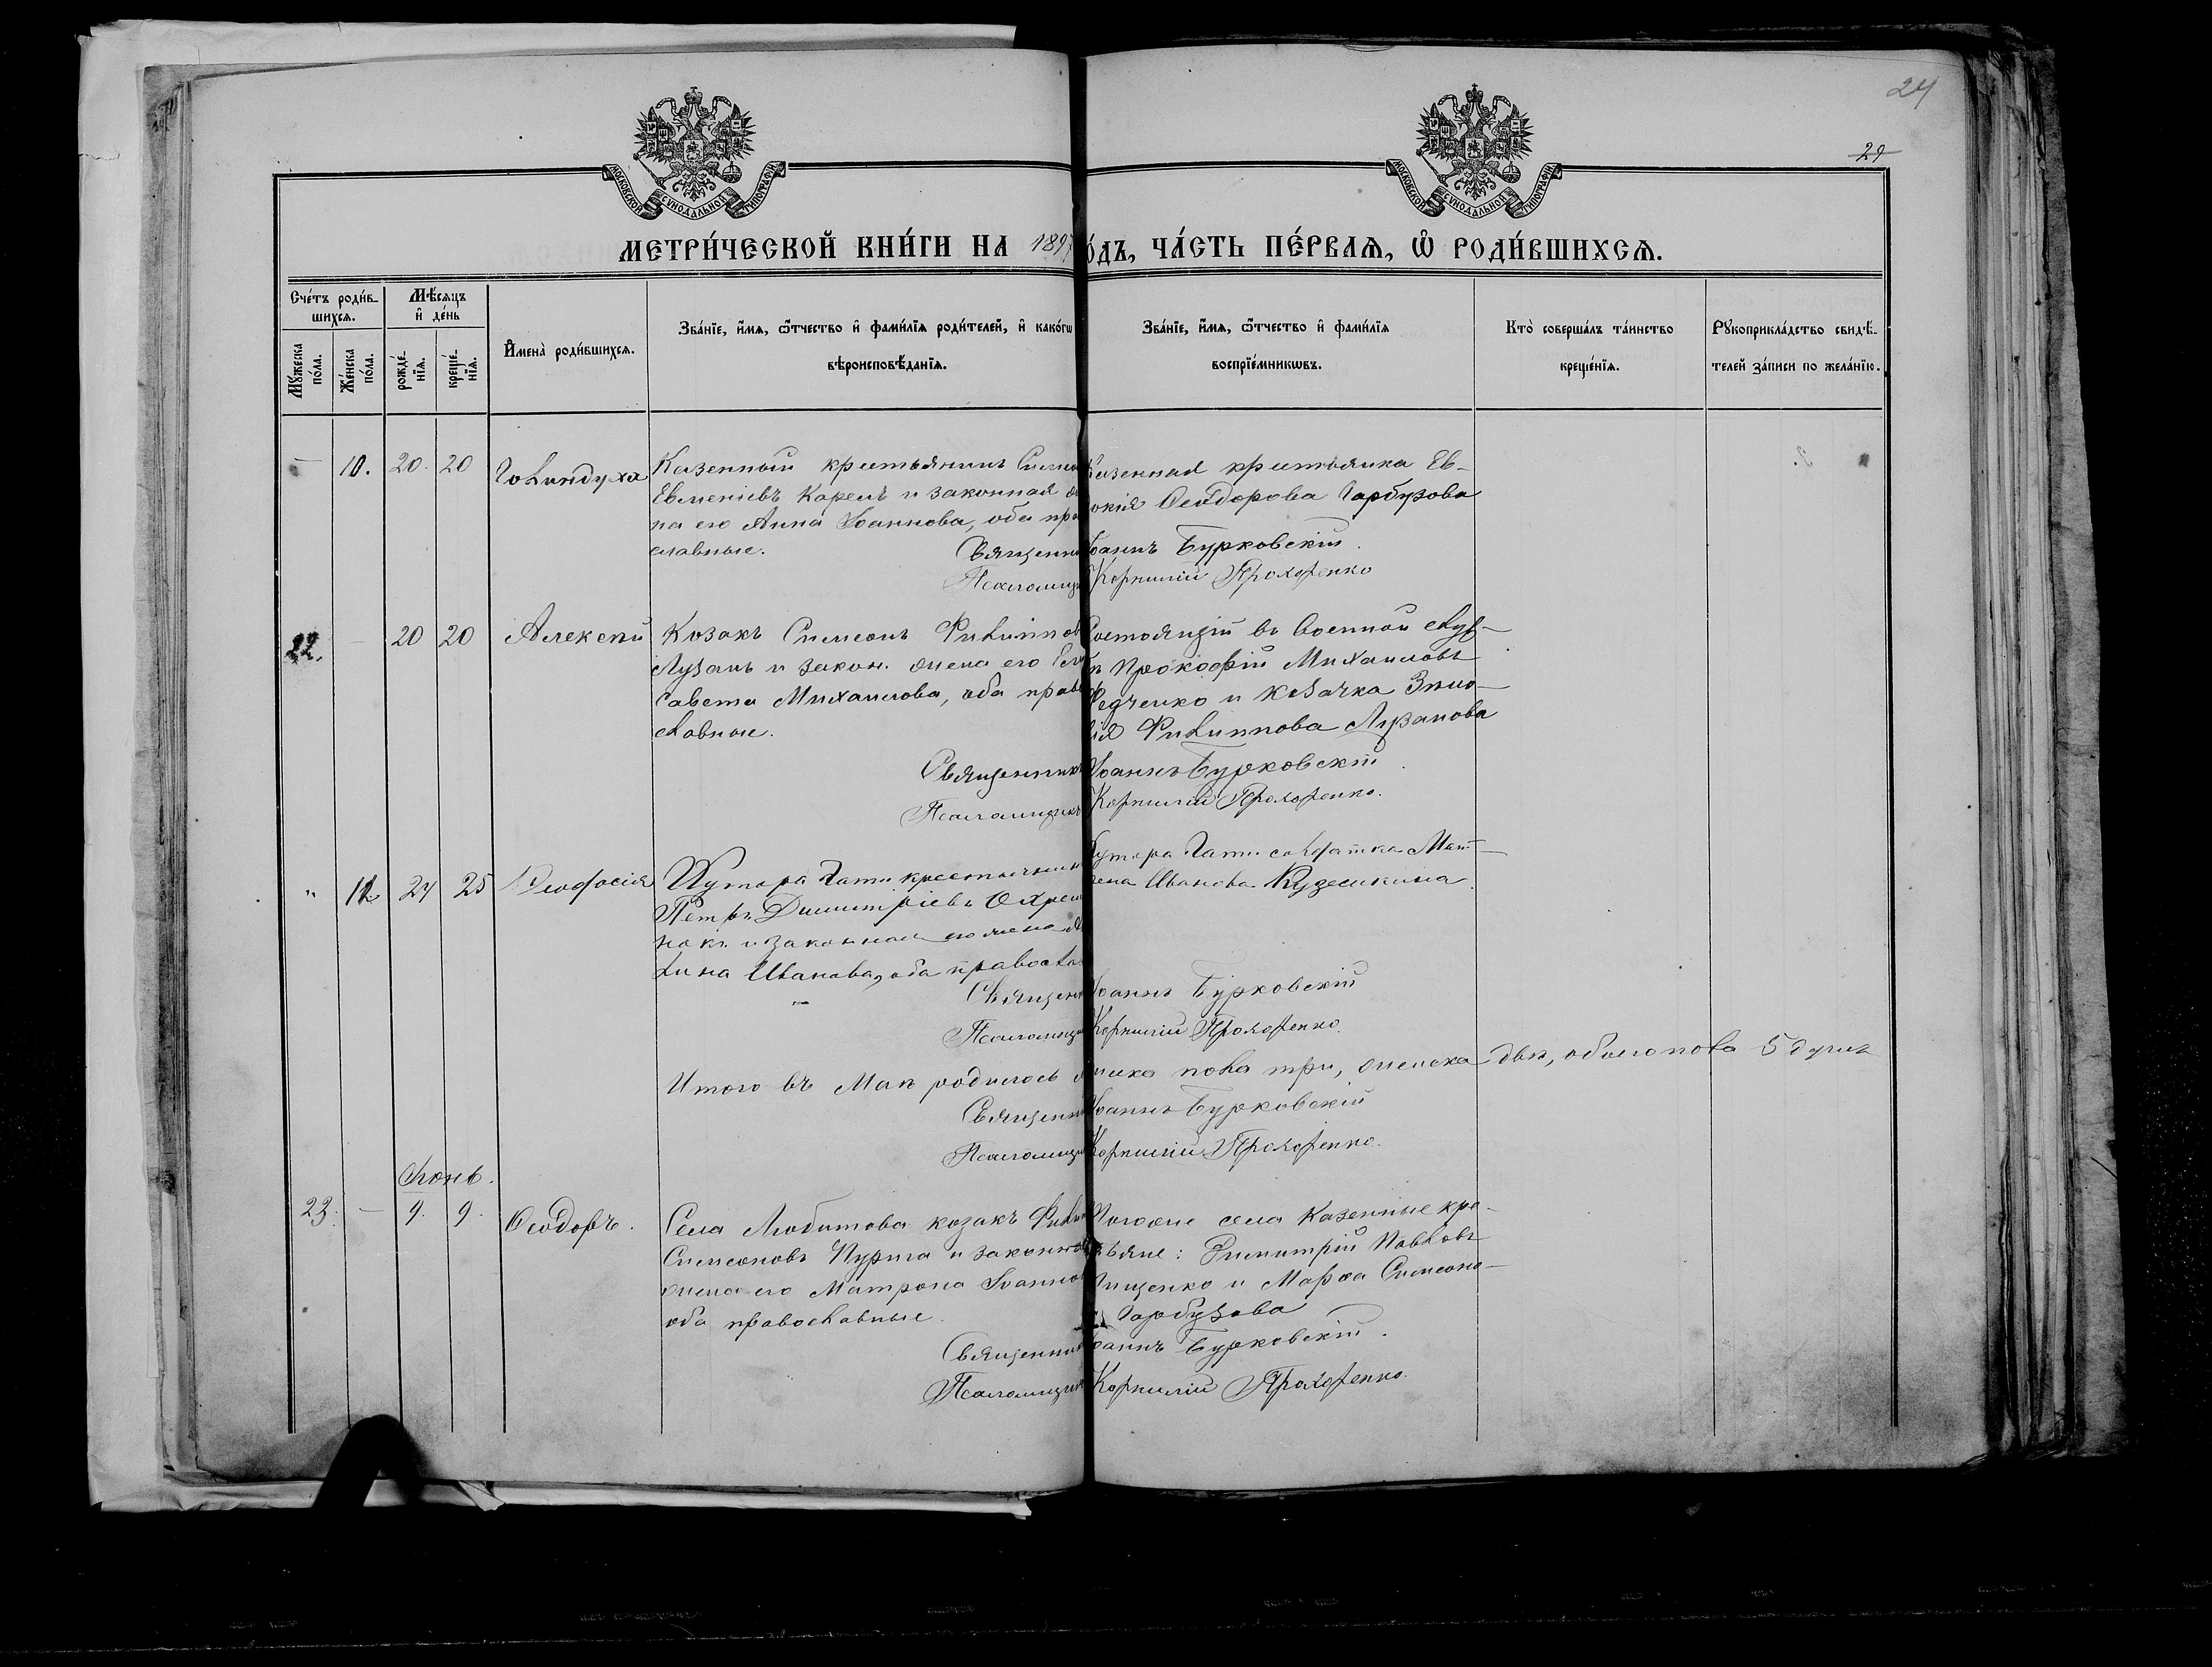 24
29
МОСКОВСКОЙ СѴНОДАЛЬНОЙ ТИПОГРАФІИ
МОСКОВСКОЙ СѴНОДАЛЬНОЙ ТИПОГРАФІИ
МЕТРИ́ЧЕСКОЙ КНИ́ГИ НА 1897 О́ДЪ, ЧА́СТЬ ПЕ́РВАѦ, Ѽ РОДИ́ВШИХСѦ.
Сче́тъ роди́в-
шихсѧ.
Мꙋ́жеска
по́ла.
Же́нска
по́ла.
Мѣ́сѧцъ
и҆ де́нь
рожде́-
нїѧ.
креще́-
нїѧ.
И҆мена̀ роди́вшихсѧ.
Зва́нїе, и҆́мѧ, ѻ҆́тчество и҆ фами́лїѧ роди́телей, и҆ како́гѡ
вѣроисповѣ́данїѧ.
Зва́нїе, и҆́мѧ, ѻ҆́тчество и҆ фами́лїѧ
воспрїе́мникѡвъ.
Кто̀ соверша́лъ та́инство
креще́нїѧ.
Рꙋкоприкла́дство свидѣ́-
телей за́писи по жела́нїю.
— 10. 20. 20 Голиндуха
Казенный крестьянинъ Симео
Евменіевъ Карель и законная
на его Анна Іоаннова, оба пра
славные.
Казенная крестьянка Ев-
докія Ѳеодорова Гарбузова
Священни Іоаннъ Бурковскій.
Псаломщи Корнилій Прохоренко
22. — 20 20 Алексѣй
Козакъ Симеонъ Филиппов
Лузанъ и закон. жена его Ели
савета Михаилова, оба право
славные.
Состоящій въ военной служ-
бѣ Прокофій Михаиловъ
Федченко и козачка Зино-
вія Филиппова Лузанова
Священникъ Іоаннъ Бурковскій.
Псаломщикъ Корнилій Прохоренко.
" 12 24 25 Ѳеодосія
Хутора Гати крестьянин
Петръ Димитріевъ Охрем
нокъ и законная его жена
лина Иванова, оба правосла
Хутора Гати солдатка Мат-
рена Иванова
Священ Іоаннъ Бурковскій
Псаломщи Корнилій Прохоренко.
Итого въ Маѣ родилось мужеска пола три, женска двѣ, обоего пола 5 душъ
Священни Іоаннъ Бурковскій
Псаломщи Корнилій Прохоренко.
Іюнь.
23. — 9. 9. Ѳеодоръ.
Села Любитова козакъ Фили
Симеоновъ Пурыга и законна
жена его Матрона Іоаннов
оба православные.
Тогоже села казенные кре-
стьяне: Димитрій Павловъ
и Марѳа Симеоно-
Гарбузова
Священни Іоаннъ Бурковскій.
Псаломщик Корнилій Прохоренко.